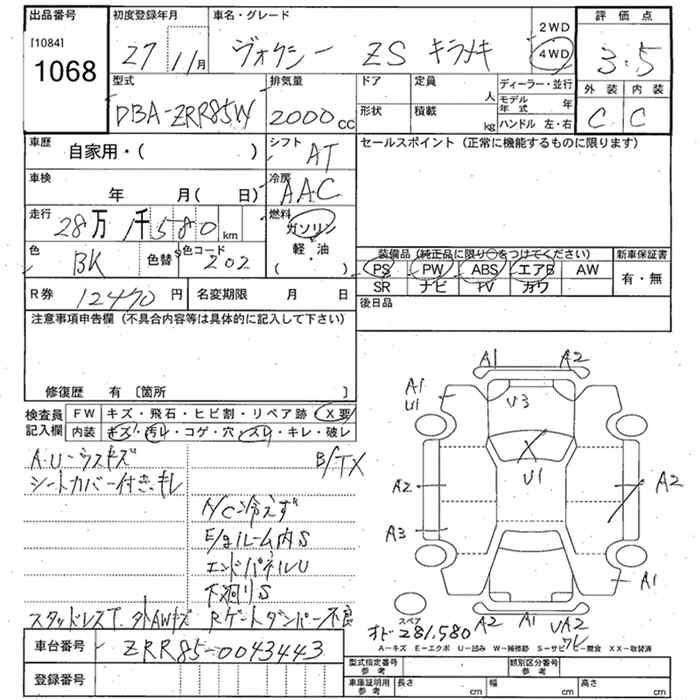 出品番号 初度登録年月 車名・グレード 評価点
[1084] 27 11月 ヴォクシー ZS キラメキ 2WD 4WD 3.5
1068
型式 排気量 ドア 定員 人 ディーラー・並行 外装 内装
DBA-ZRR85W 2000cc 形状 積載 kg モデル年式 年 C C
ハンドル 左・右
車歴 自家用・( ) シフト AT セールスポイント (正常に機能するものに限ります)
車検 年 月( 日) 冷房 AAC
走行 28万1千580km 燃料 ガソリン
軽・油
( )
色 BK 色替 色コード 202 装備品 (純正品に限り○をつけてください) 新車保証書
PS PW ABS エアB AW 有・無
SR ナビ TV カワ
R券 12470円 名変期限 月 日 後日品
注意事項申告欄 (不具合内容等は具体的に記入して下さい)
修復歴 有 〔箇所 〕
検査員 FW キズ・飛石・ヒビ割・リペア跡・X要
記入欄 内装 キズ・汚れ・コゲ・穴・スレ・キレ・破レ
A・U-ウスキズ B/TX
シートカバー付き、キレ
A/C冷えず
E/gルーム内S
エンドパネルU
下廻りS
スタッドレスT. 外AWキズ Rゲートダンパー不良
車台番号 ZRR85-0043443
登録番号
A1 A2
A1 U1 U3
X U1
A2 A2
A3
A1
スペア
オド281,580 A2 A1 UA2
ワレ
A-キズ E-エクボ U-凹み W-補修跡 S-サビ C-腐食 XX-取替済
型式指定番号 参考 類別区分番号 参考
車庫証明用 参考 長さ cm 幅 cm 高さ cm